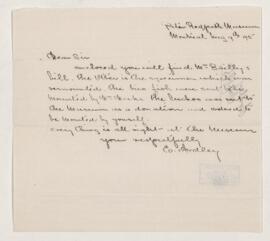 Peter Redpath Museum
Montreal Aug 9th 95
Dear Sir
enclosed you will find Mr Bailly's
bill. The Otter is the specimen which was
remounted. The two fish were sent
mounted by Mr The was sent to
the Museum as a donation and asked to
be mounted by yourself.
every thing is all right at the Museum
your respectfully
E. Ardley